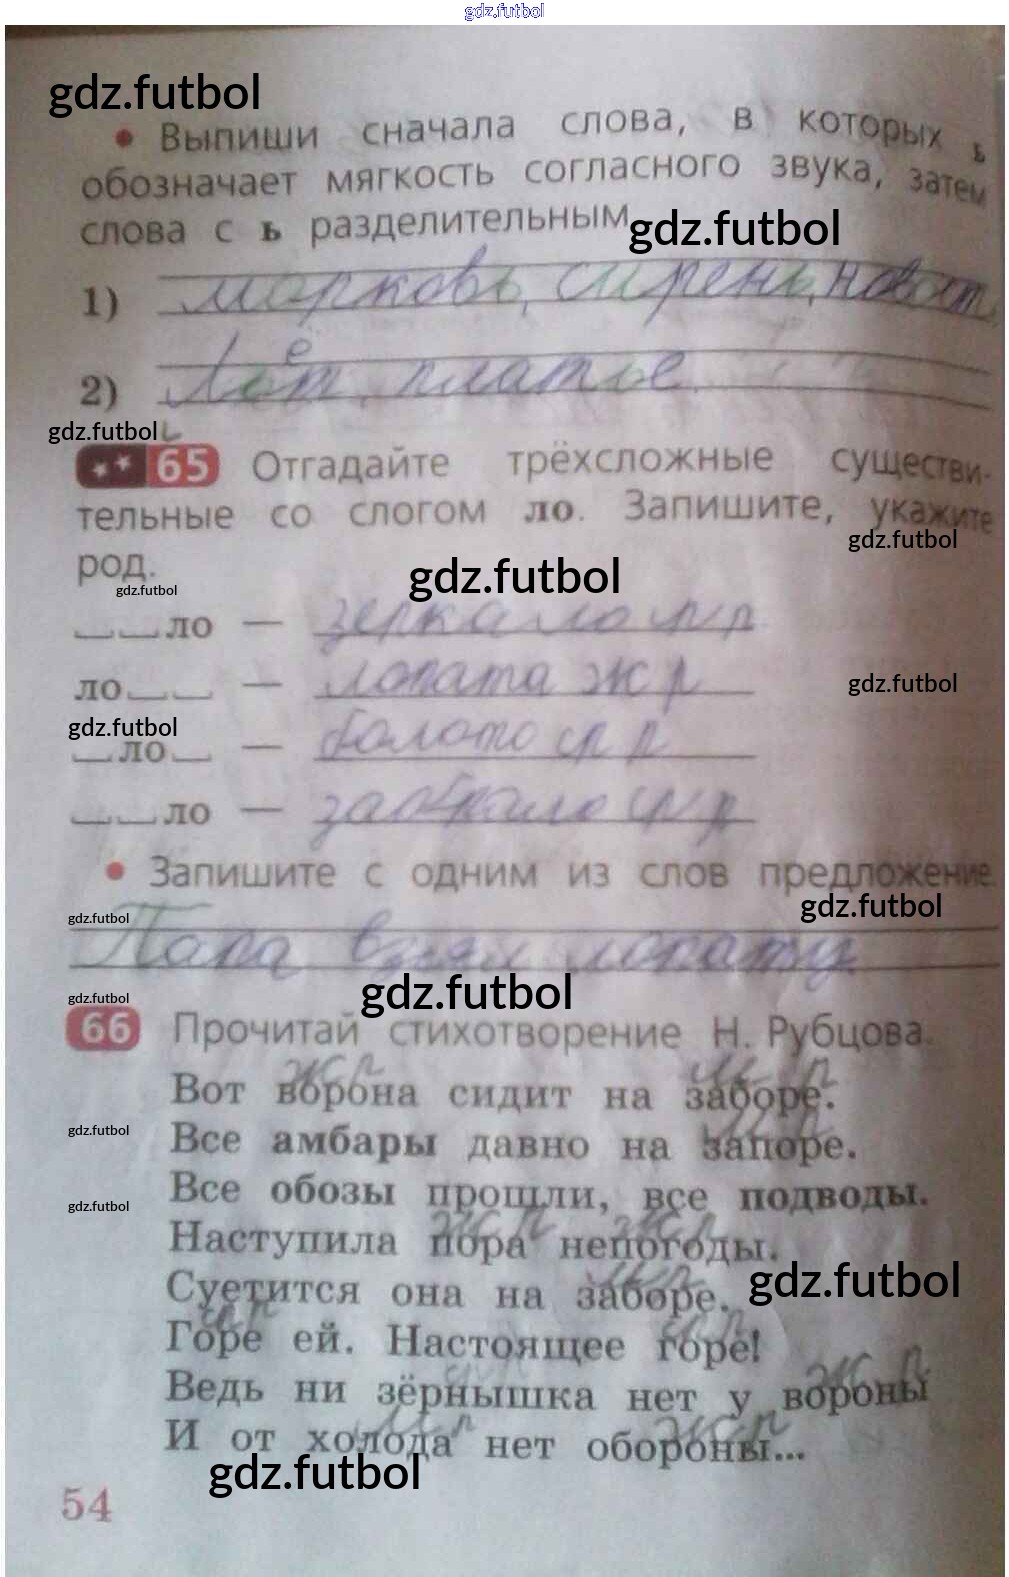 gdz.futbol
gdz.futbol
• Выпиши сначала слова, в которых ь
обозначает мягкость согласного звука, затем
слова с ь разделительным.
gdz.futbol
1) морковь, сирень,
2) льёт, платье.
gdz.futbol
65 Отгадайте трёхсложные существи-
тельные со слогом ло. Запишите, укажите
gdz.futbol
род.
gdz.futbol
gdz.futbol
ло — зеркало ср р
ло — лопата ж р
gdz.futbol
gdz.futbol
ло — болото ср р
ло — ср р
• Запишите с одним из слов предложение.
gdz.futbol
gdz.futbol
Папа взял лопату
gdz.futbol
gdz.futbol
66 Прочитай стихотворение Н. Рубцова.
ж р м р
Вот ворона сидит на заборе.
м р
gdz.futbol
Все амбары давно на запоре.
Все обозы прошли, все подводы.
gdz.futbol
ж р ж р
Наступила пора непогоды.
м р
gdz.futbol
Суетится она на заборе.
ср р ср р
Горе ей. Настоящее горе!
ср р ж р
Ведь ни зёрнышка нет у вороны
м р ж р
И от холода нет обороны...
gdz.futbol
54